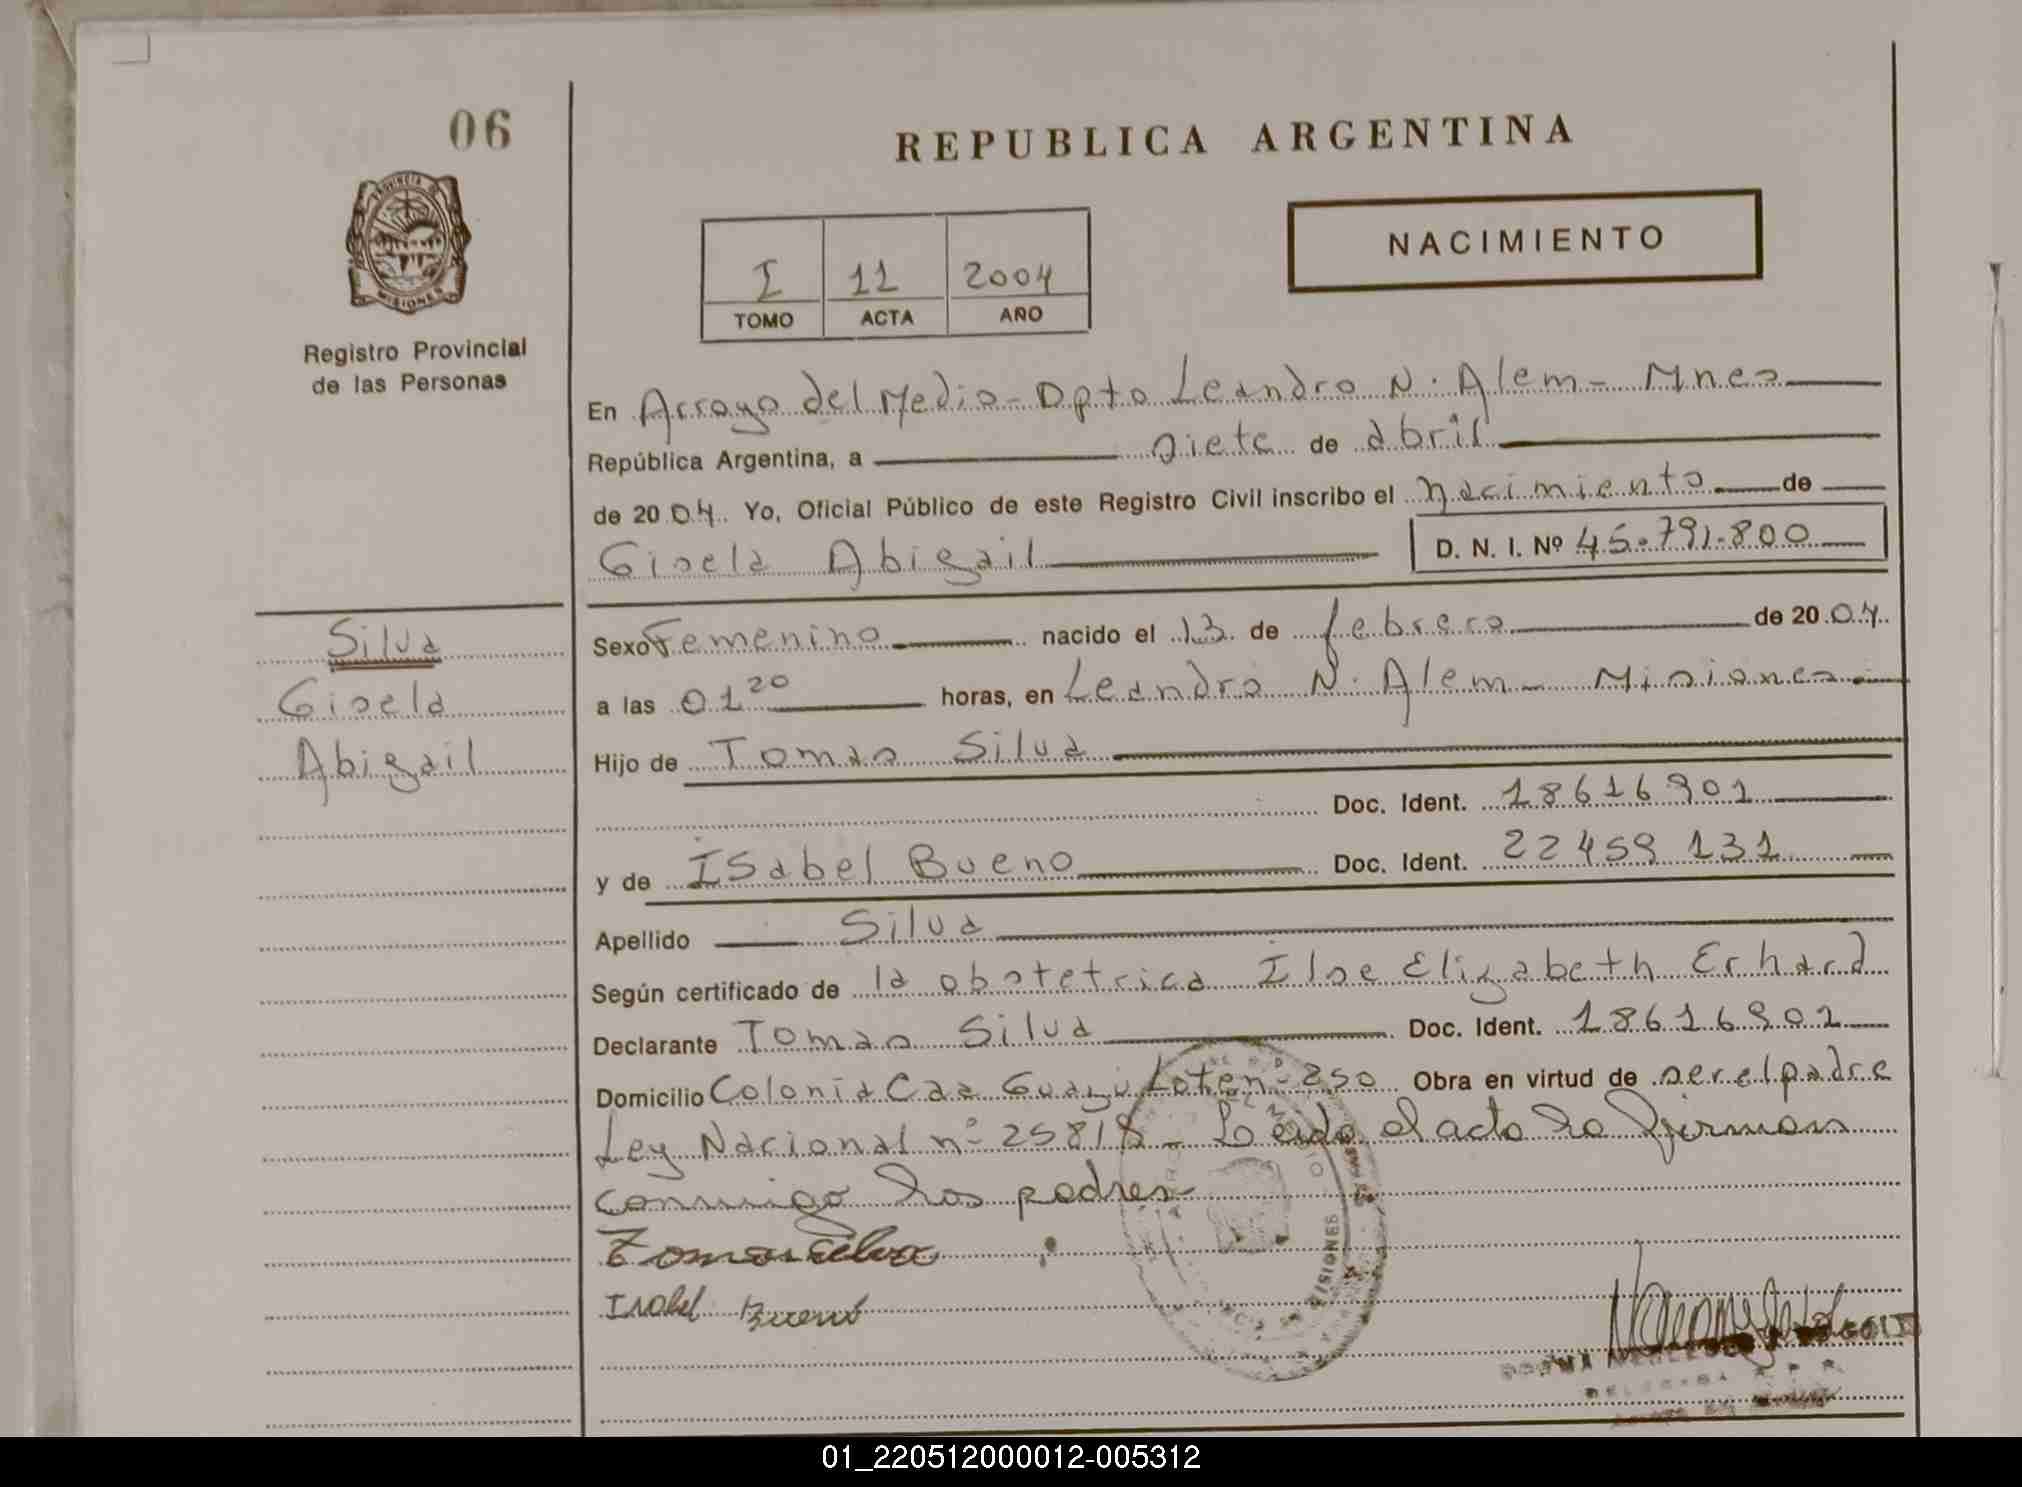 06
REPUBLICA ARGENTINA
NACIMIENTO
PROVINCIA DE
MISIONES
Registro Provincial
de las Personas
I 11 2004
TOMO ACTA AÑO
En Arroyo del Medio - Dpto Leandro N. Alem - Mnes
República Argentina, a siete de abril
de 2004. Yo, Oficial Público de este Registro Civil inscribo el nacimiento de
Gisela Abigail D. N. I. Nº 45.791.800
Silva
Gisela
Abigail
Sexo Femenino nacido el 13 de febrero de 2004
a las 01 20 horas, en Leandro N. Alem - Misiones
Hijo de Tomas Silva
Doc. Ident. 18616901
y de Isabel Bueno Doc. Ident. 22459131
Apellido Silva
Según certificado de la obstetrica Ilse Elizabeth Erhard
Declarante Tomas Silva Doc. Ident. 18616901
Domicilio Colonia Caa Guazú Lote n- 250 Obra en virtud de ser el padre
Ley Nacional nº 25818 - Leido el acto lo firman
conmigo los padres
Tomas Silva
Isabel Bueno
MISIONES
01_220512000012-005312